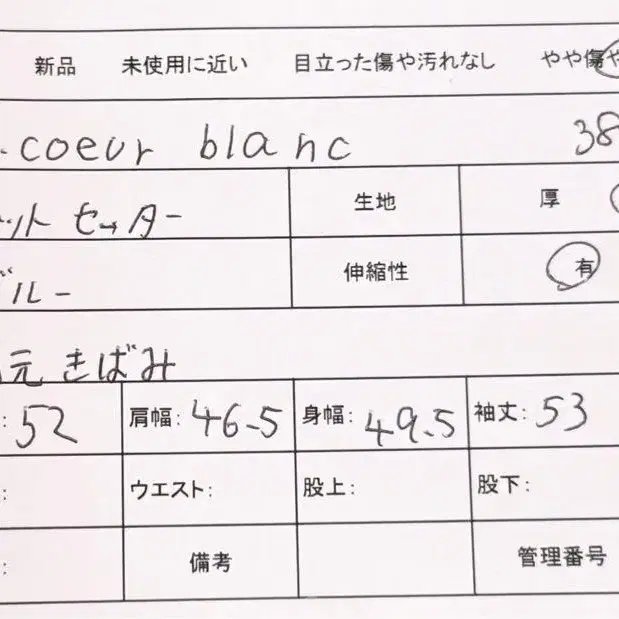 新品 未使用に近い 目立った傷や汚れなし やや傷や
coeur blanc 38
ット セーター 生地 厚
ブルー 伸縮性 有
元 きばみ
: 52 肩幅: 46.5 身幅: 49.5 袖丈: 53
: ウエスト: 股上: 股下:
: 備考 管理番号